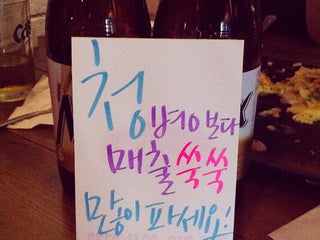 청병보다
매출 쑥쑥
많이 파세요!